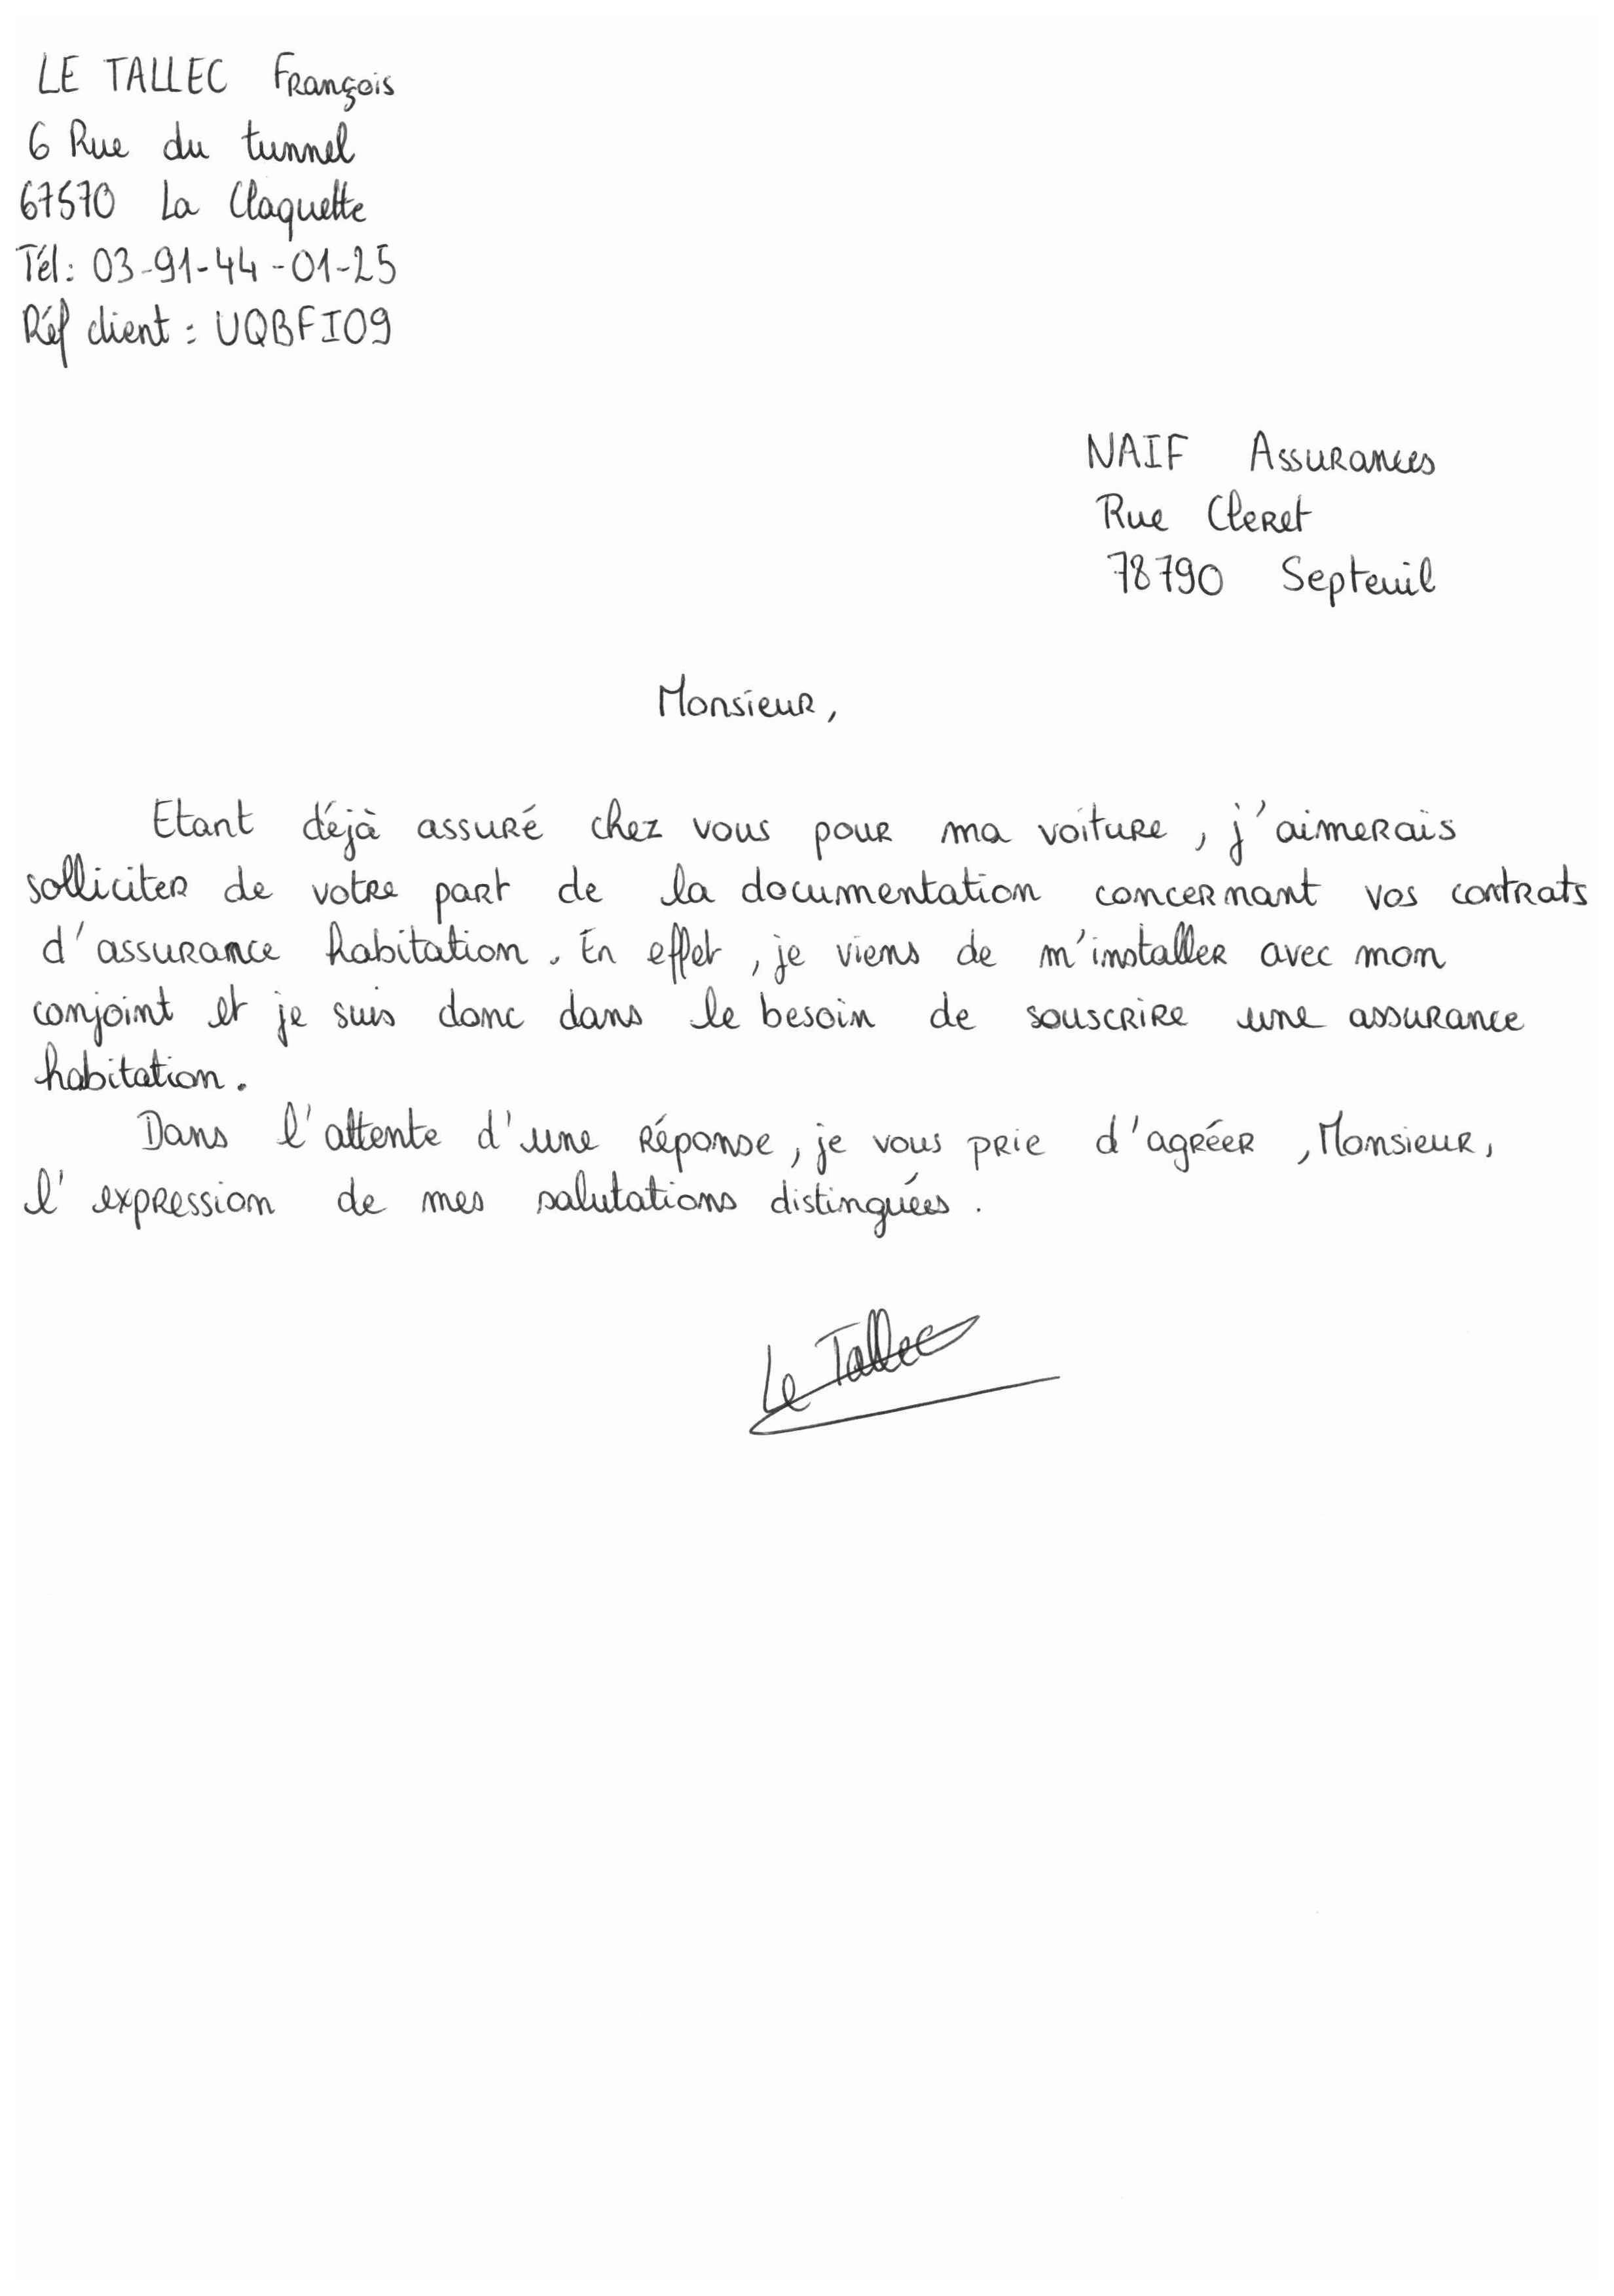 LE TALLEC François
6 Rue du tunnel
67570 La Claquette
Tél : 03-91-44-01-25
Réf client : UQBFI09
NAIF Assurances
Rue Cleret
78790 Septeuil
Monsieur,
Etant déjà assuré chez vous pour ma voiture, j'aimerais
solliciter de votre part de la documentation concernant vos contrats
d'assurance habitation. En effet, je viens de m'installer avec mon
conjoint et je suis donc dans le besoin de souscrire une assurance
habitation.
Dans l'attente d'une réponse, je vous prie d'agréer, Monsieur,
l'expression de mes salutations distinguées.
Le Tallec